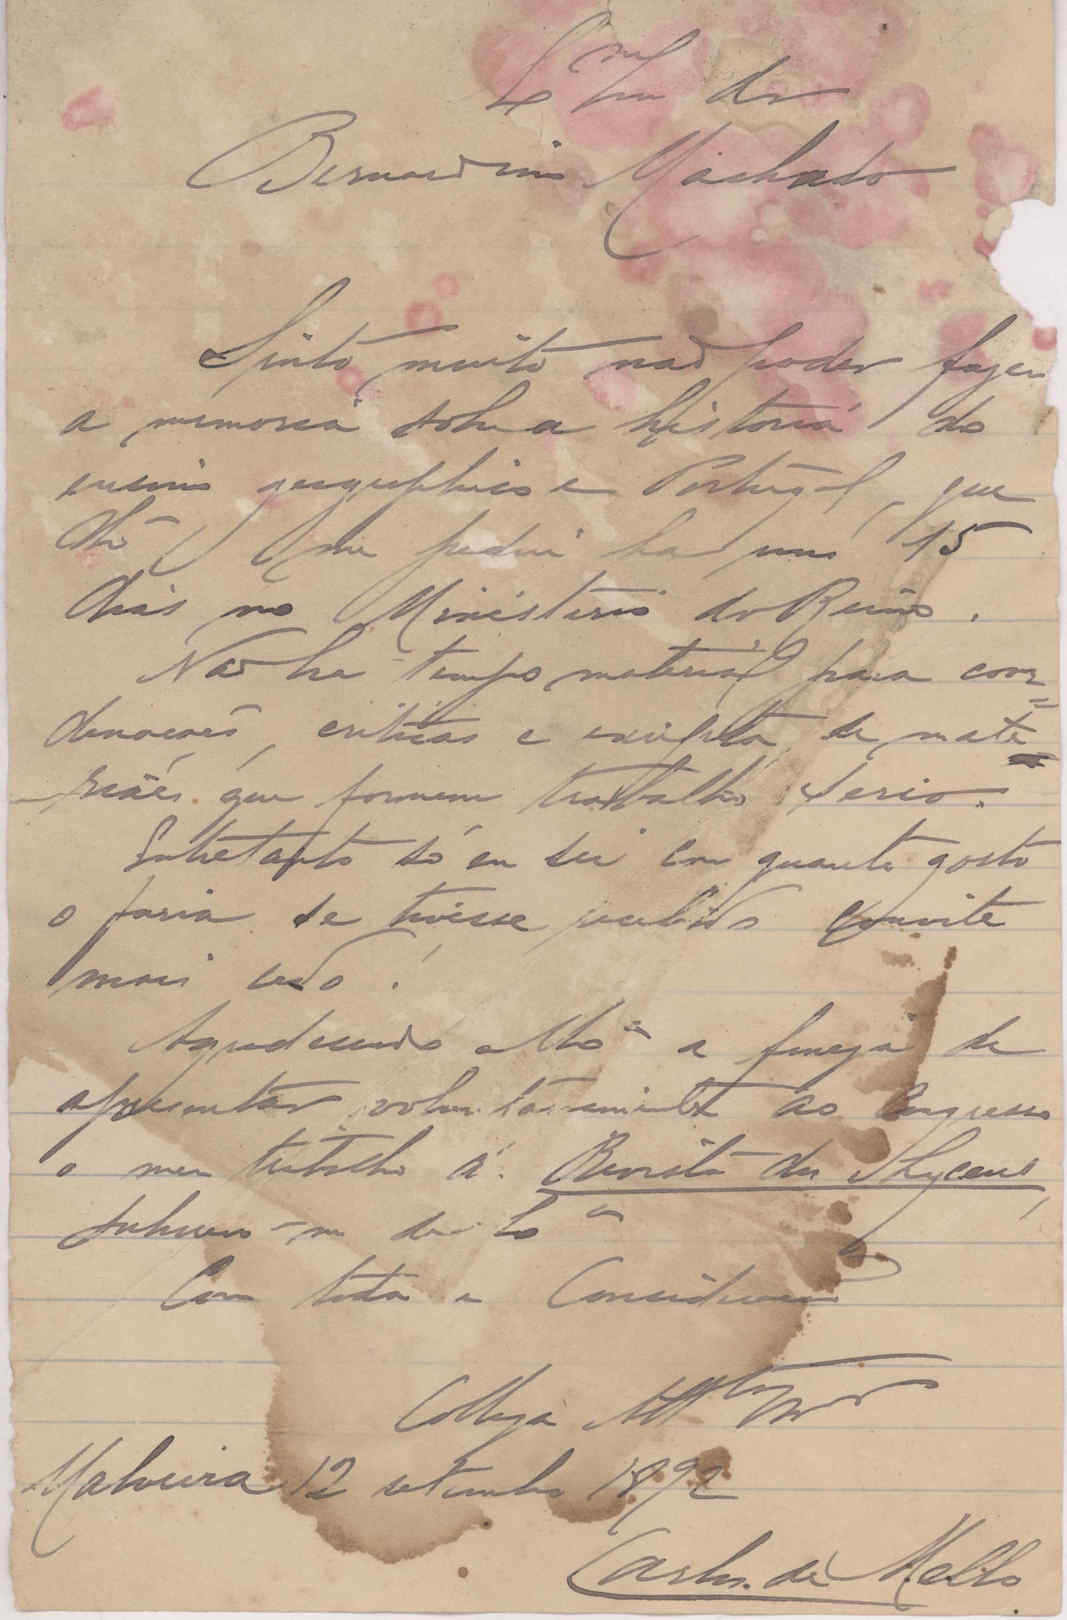 Ex.mo Snr dr
Bernardino Machado
Sinto muito não poder fazer
a memoria sobre a historia do
ensino geographico em Portugal, que
me pediu ha uns 15
dias no Ministerio do Reino.
Não ha tempo material para coor=
denações, criticas e de mate=
riáes que formem trabalho serio.
Entretanto só eu sei com quanto gosto
o faria se tivesse recebido convite
mais cedo!
Agradecendo a fineza de
apresentar voluntariamente ao Congresso
o meu trabalho á Revista dos Lyceus,
Com toda a Consideração
Collega Att.to
Malveira 12 setembro 1892
Carlos de Mello